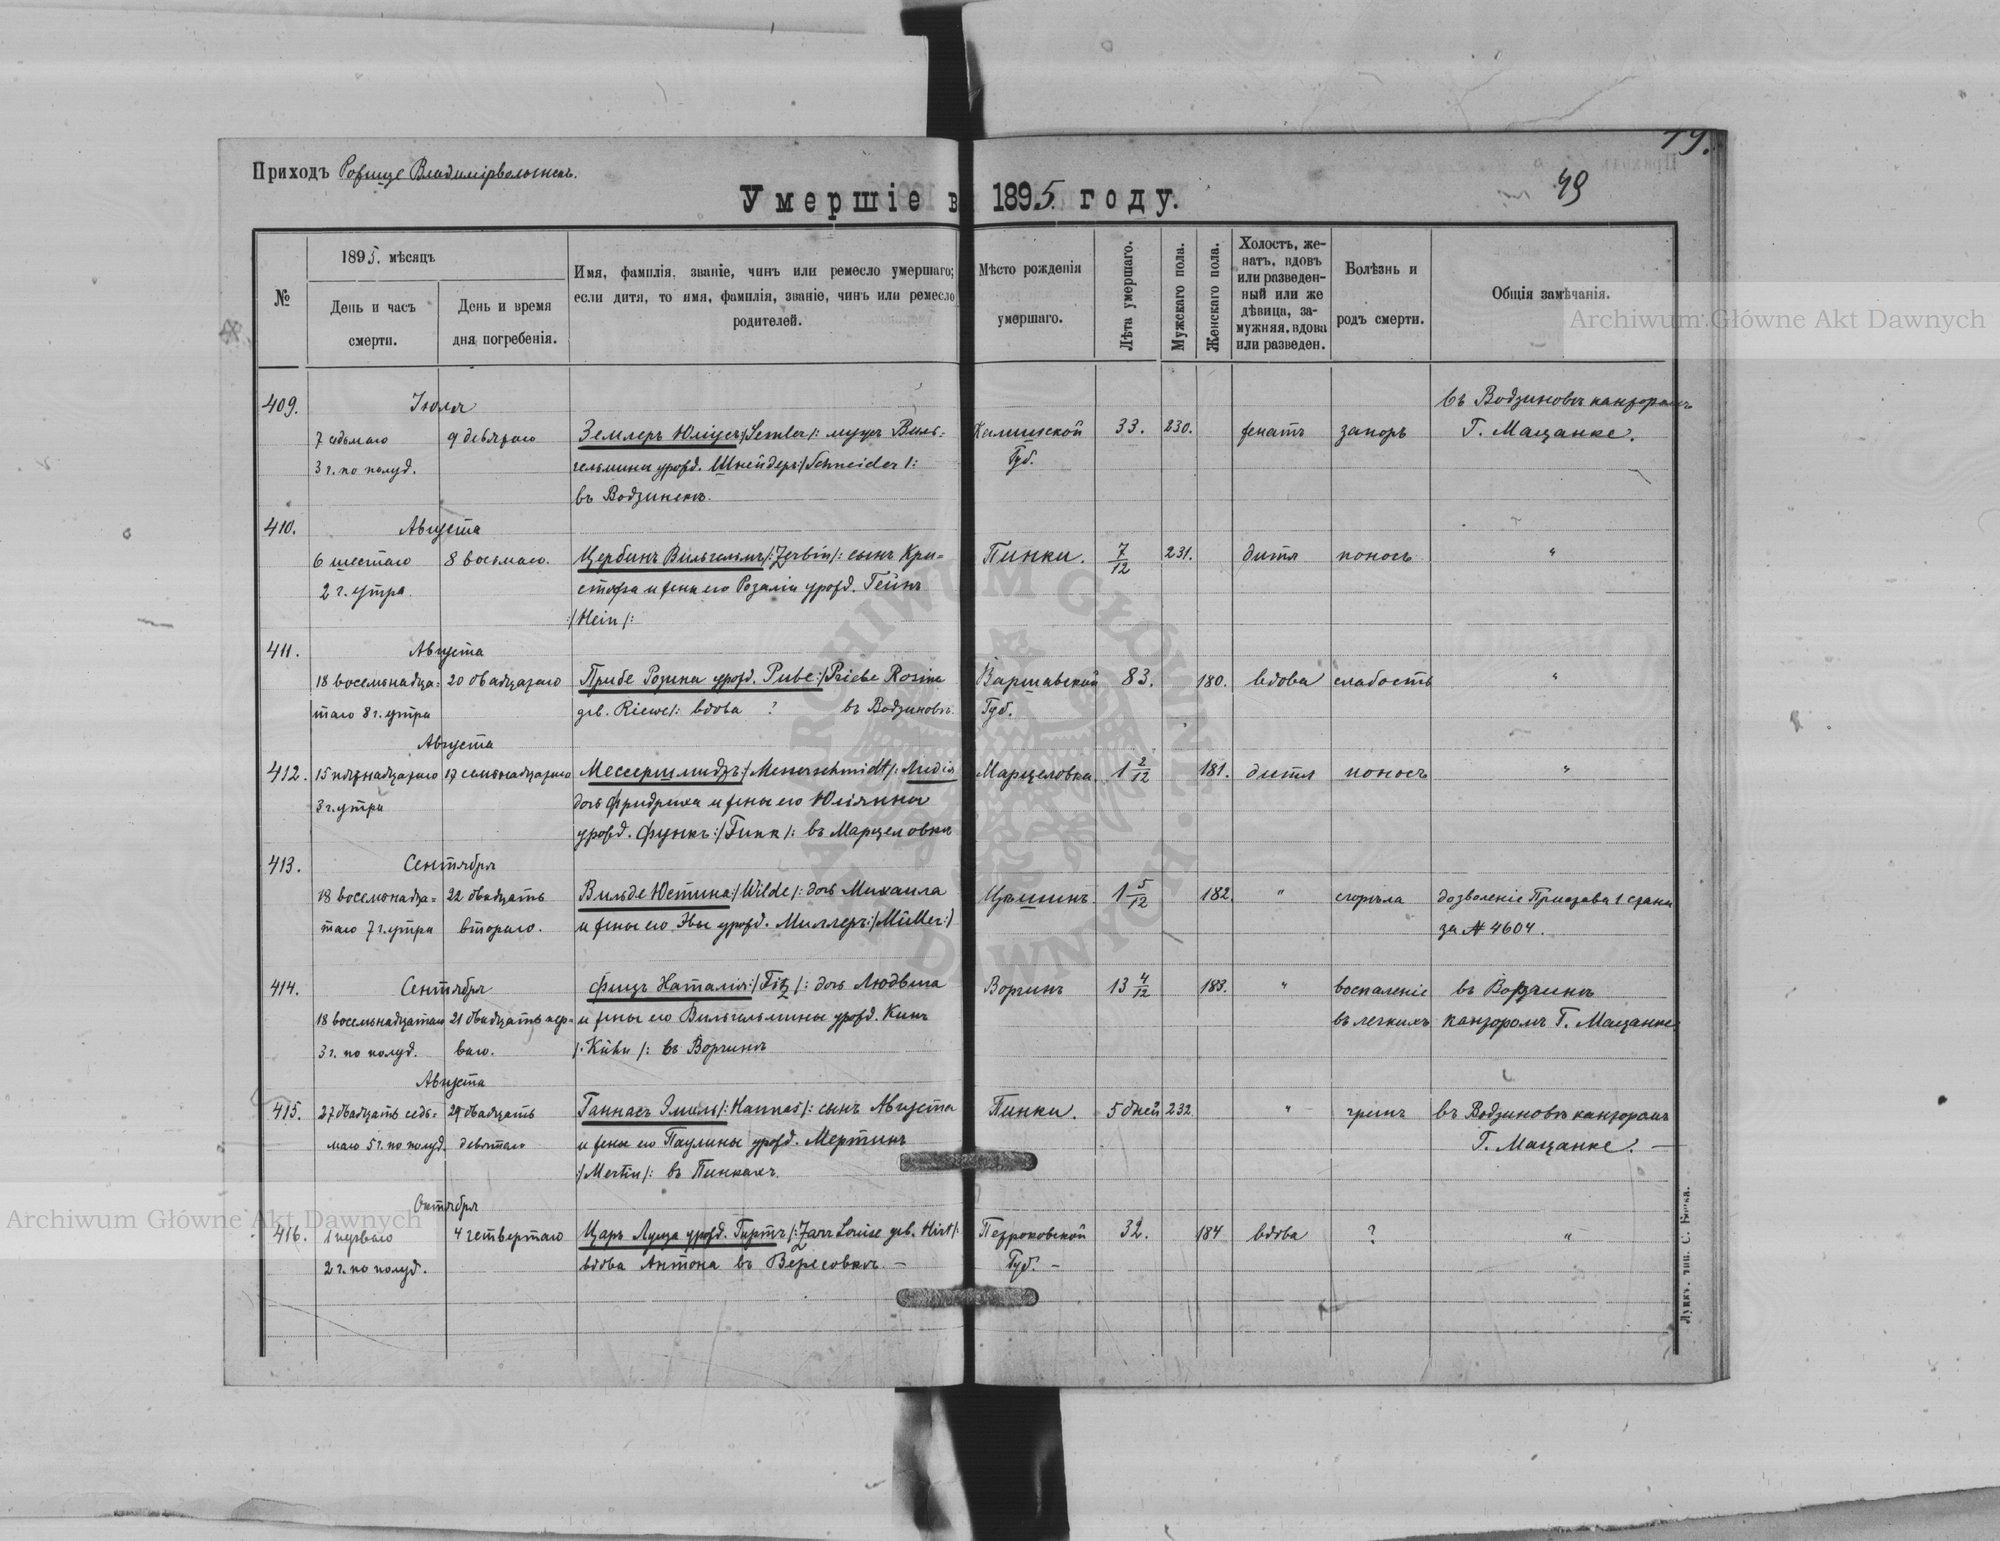 19.
49
Приходъ Рожище Владимірволынск.
Умершіе въ 1895 году.
№
1895 мѣсяцъ
День и часъ смерти.
День и время дня погребенія.
Имя, фамилія, званіе, чинъ или ремесло умершаго; если дитя, то имя, фамилія, званіе, чинъ или ремесло родителей.
Мѣсто рожденія умершаго.
Лѣта умершаго.
Мужскаго пола.
Женскаго пола.
Холостъ, женатъ, вдовъ или разведенный или же дѣвица, замужняя, вдова или разведен.
Болѣзнь и родъ смерти.
Общія замѣчанія.
Archiwum Główne Akt Dawnych
409. Іюля въ Водзиновѣ канторомъ
7 седьмаго 9 девятаго Земмеръ Юліусъ /:Semler/: мужъ Виль= Калишской 33. 230. женатъ запоръ Г. Мащанке.
3 г. по полуд. гельмины урожд. Шнейдеръ /:Schneider/: Губ.
въ Водзинекъ.
410. Августа
6 шестаго 8 восьмаго. Цербинъ Вильгельмъ /:Zerbin/: сынъ Кри= Пинки. 7/12 231. дитя поносъ "
2 г. утра. стофа и жены его Розаліи урожд. Гейнъ
/:Hein/:
411. Августа
18 восемьнадца= 20 двадцатаго Прибе Розина урожд. Риве: /:Priebe Rosine Варшавской 83. 180. вдова слабость "
таго 8 г. утра geb. Riewe/: вдова ? въ Водзиновѣ. Губ.
Августа
412. 15 пятнадцатаго 17 семьнадцатаго Мессершмидтъ /:Messerschmidt/: Лидія Марцеловка. 1 2/12 181. дитя поносъ "
3 г. утра дочь Фридриха и жены его Юліянны
урожд. Функъ: /:Funk/: въ Марцеловкѣ
413. Сентября
18 восемьнадца= 22 двадцать Вильде Юстина: /Wilde/: дочь Михаила Цѣшинъ 1 5/12 182. " сгорѣла дозволеніе Пристава 1 стана
таго 7 г. утра втораго. и жены его Евы урожд. Миллеръ: /Müller:/ за № 4604.
414. Сентября Фицъ Наталія: /Fitz/: дочь Людвига Ворчинъ 13 4/12 183. " воспаленіе въ Ворчинѣ
18 восемьнадцатаго 21 двадцать пер= и жены его Вильгельмины урожд. Кинъ въ легкихъ канторомъ Г. Мащанке.
3 г. по полуд. ваго. /:Kühn/: въ Ворчинѣ
Августа
415. 27 двадцать седь= 29 двадцать Ганнасъ Эмиль /:Hannas/: сынъ Августа Пинки. 5 дней 232 " грипъ въ Водзиновѣ канторомъ
маго 5 г. по полуд. девятаго и жены его Паулины урожд. Мертинъ Г. Мащанке. —
/:Mertin/: въ Пинкахъ.
Октября
416. 1 перваго 4 четвертаго Царъ Луиза урожд. Гиртъ /:Zarr Louise geb. Hirt/: Петроковской 32. 184 вдова ? "
2 г. по полуд. вдова Антона въ Вересовкѣ. — Губ. —
Archiwum Główne Akt Dawnych
ARCHIWUM GŁÓWNE AKT DAWNYCH
Луцкъ. тип. С. Бонка.